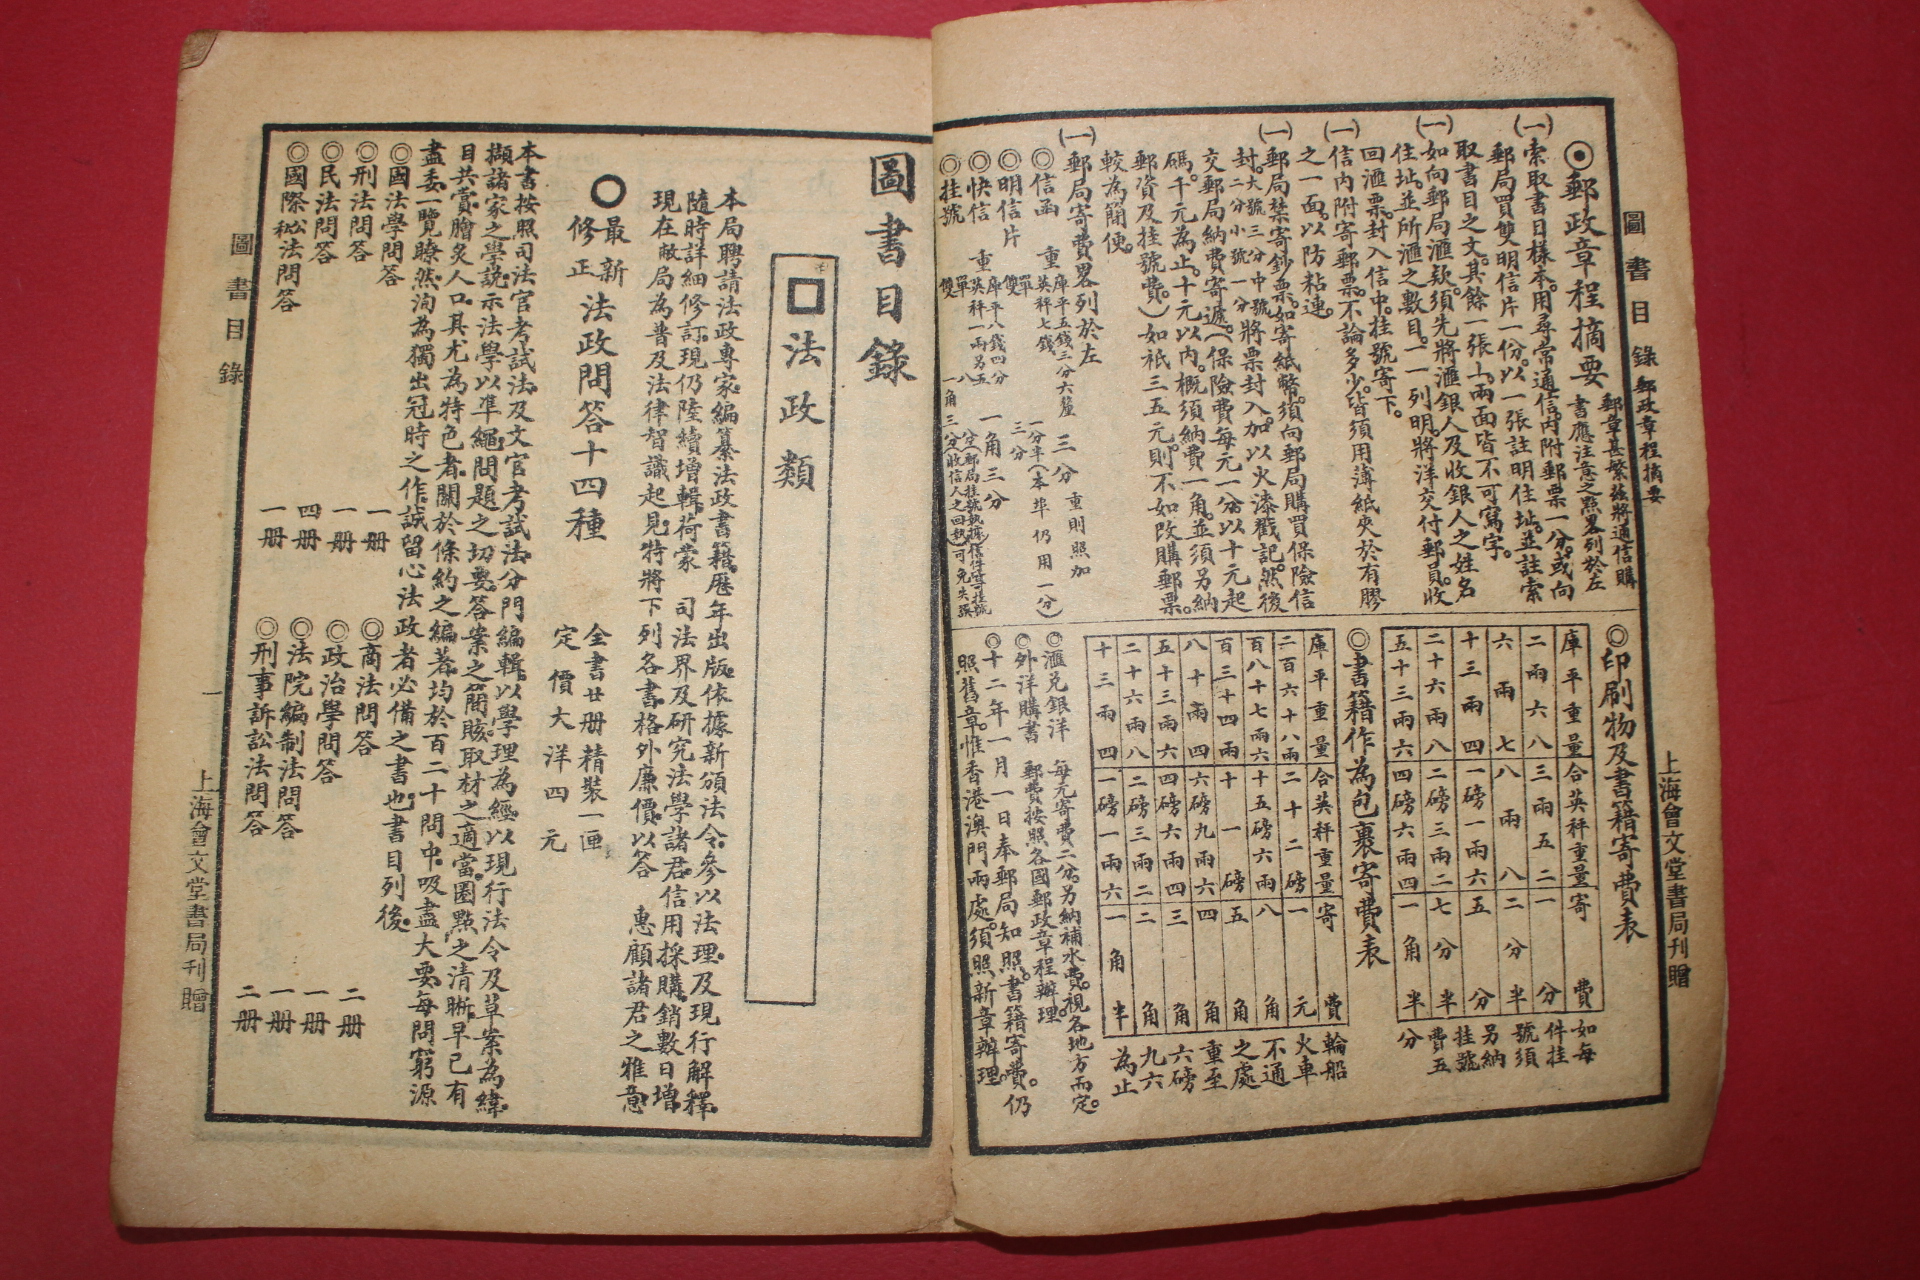 圖書目錄 郵政章程摘要
上海會文堂書局刊贈
◉郵政章程摘要 郵章甚繁茲將通信購
書應注意之點畧列於左
(一)索取書目樣本。用尋常通信。內附郵票一分。或向
郵局買雙明信片一份。以一張註明住址。並註索
取書目之文。其餘一張上兩面皆不可寫字。
(一)如向郵局滙欵。須先將滙銀人及收銀人之姓名
住址。並所滙之數目。一一列明。將洋交付郵員。收
回滙票。封入信中。挂號寄下。
(一)信內附寄郵票。不論多少。皆須用薄紙夾於有膠
之一面。以防粘連。
(一)郵局禁寄鈔票。如寄紙幣。須向郵局購買保險信
封。大號三分中號二分小號一分將票封入。加以火漆戳記。然後
交郵局納費寄遞。(保險費每元一分。以十元起
碼。千元為止。十元以內。概須納費一角。並須另納
郵資及挂號費。)如祇三五元。則不如改購郵票。
較為簡便。
(一)郵局寄費畧列於左
◎信函 重庫平五錢三分六釐英秤七錢 三分 重則照加
◎明信片 單雙 一分半(本埠仍用一分)三分
◎快信 重庫平八錢四分英秤一兩另五 一角三分
◎挂號 單雙 八分一角三分
◎印刷物及書籍寄費表
庫平重量 合英秤重量 寄費
二兩六八 三兩五二 一分
六兩七 八兩八 二分半
十三兩四 一磅一兩六 五分
二十六兩八 二磅三兩二 七分半
五十三兩六 四磅六兩四 一角半
如每件挂號須另納挂號費五分
◎書籍作為包裹寄費表
庫平重量 合英秤重量 寄費
二百六十八兩 二十二磅 一元
百八十七兩六 十五磅六兩 八角
百三十四兩 十一磅 五角
八十兩四 六磅九兩六 四角
五十三兩六 四磅六兩四 三角
二十六兩八 二磅三兩二 二角
十三兩四 一磅一兩六 一角半
輪船火車不通之處重至六磅九六為止
◎滙兌銀洋 每元寄費二分。另納補水費。視各地方而定。
◎外洋購書 郵費按照各國郵政章程辦理。
◎十二年一月一日奉郵局知照。書籍寄費。仍
照舊章。惟香港澳門兩處。須照新章辦理。
圖書目錄
□法政類
本局聘請法政專家。編纂法政書籍。歷年出版。依據新頒法令。參以法理。及現行解釋。
隨時詳細修訂。現仍陸續增輯。荷蒙 司法界及研究法學諸君。信用採購。銷數日增。
現在敝局為普及法律智識起見。特將下列各書。格外廉價。以答 惠顧諸君之雅意。
○最新修正法政問答十四種 全書廿册精裝一匣
定價大洋四元
本書按照司法官考試法。及文官考試法。分門編輯。以學理為經。以現行法令及草案為緯。
擷諸家之學說。示法學以準繩。問題之切要。答案之簡賅。取材之適當。圈點之清晰。早已有
目共賞。膾炙人口。其尤為特色者。關於條約之編著。均於百二十問中。吸盡大要。每問窮源
盡委。一覽瞭然。洵為獨出冠時之作。誠留心法政者必備之書也。書目列後。
◎國法學問答 一册
◎刑法問答 一册
◎民法問答 四册
◎國際私法問答 一册
◎商法問答 二册
◎政治學問答 一册
◎法院編制法問答 一册
◎刑事訴訟法問答 二册
圖書目錄 一 上海會文堂書局刊贈